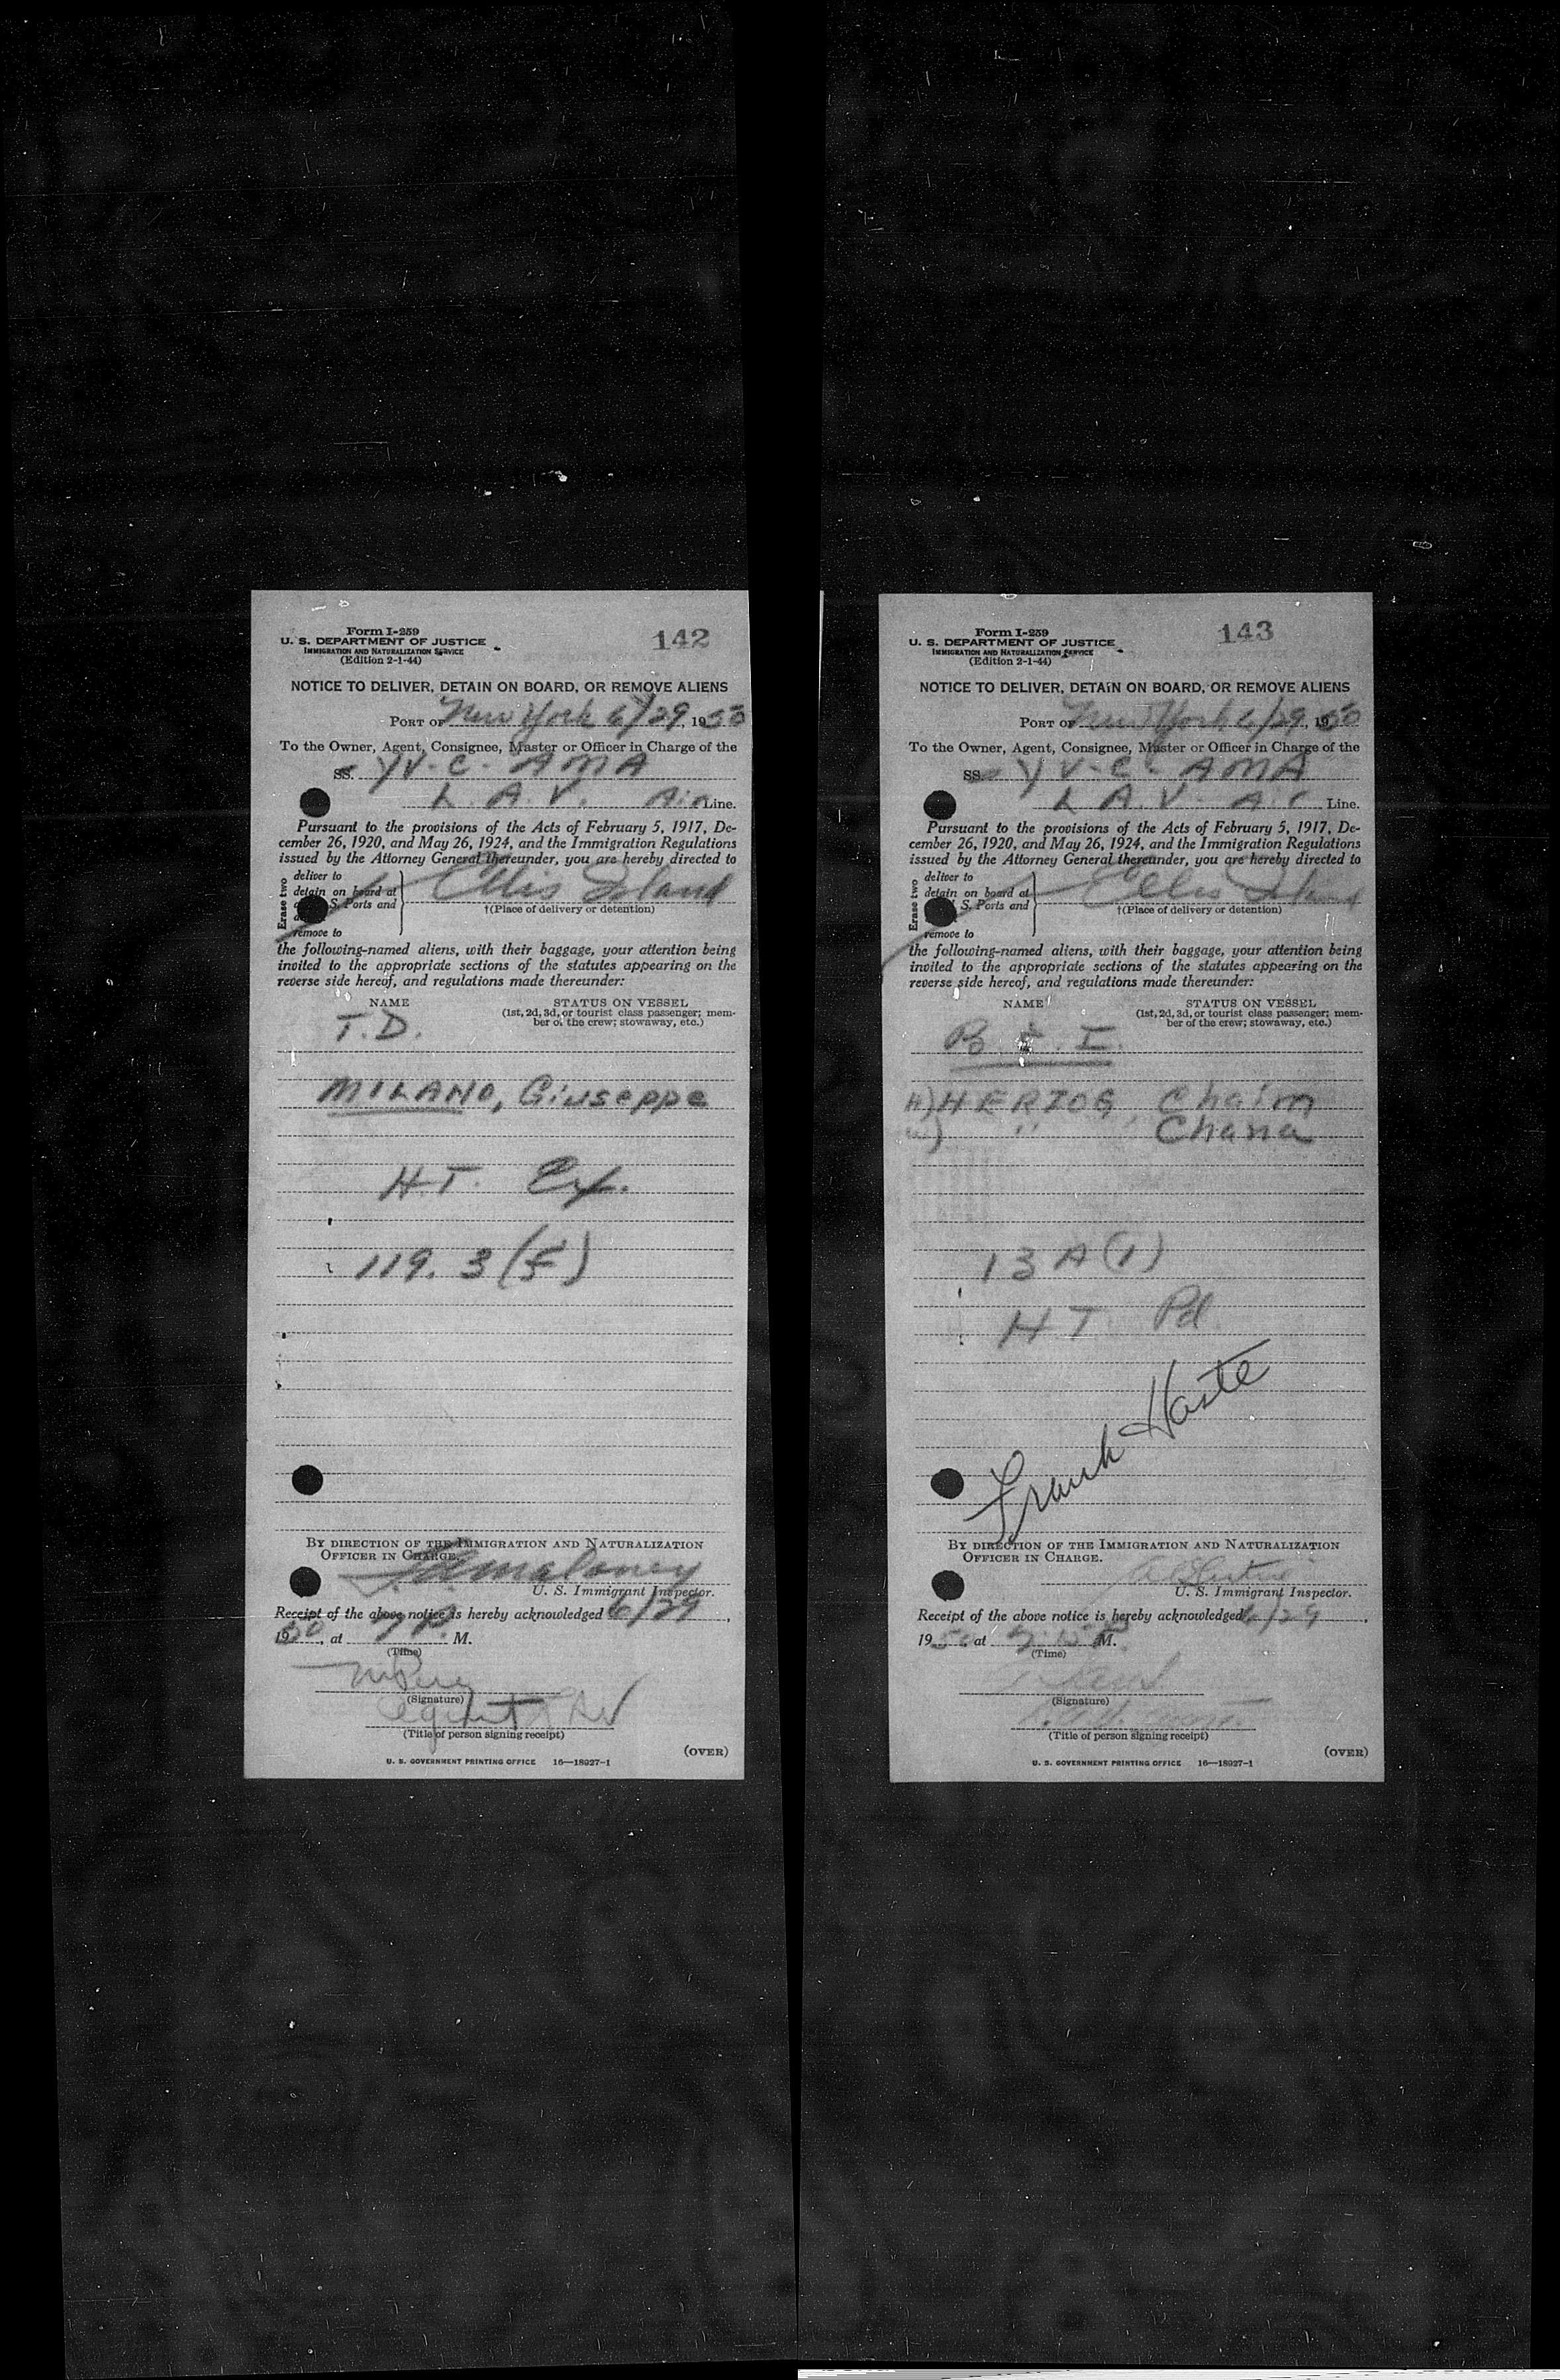 Form I-259
142
U. S. DEPARTMENT OF JUSTICE
IMMIGRATION AND NATURALIZATION SERVICE
(Edition 2-1-44)
NOTICE TO DELIVER, DETAIN ON BOARD, OR REMOVE ALIENS
PORT OF New York 6/29, 1950
To the Owner, Agent, Consignee, Master or Officer in Charge of the
SS. YV-C-AMA
L. A. V. Air Line.
Pursuant to the provisions of the Acts of February 5, 1917, De-
cember 26, 1920, and May 26, 1924, and the Immigration Regulations
issued by the Attorney General thereunder, you are hereby directed to
Erase two
deliver to
detain on board at
S. Ports and
remove to
Ellis Island
†(Place of delivery or detention)
the following-named aliens, with their baggage, your attention being
invited to the appropriate sections of the statutes appearing on the
reverse side hereof, and regulations made thereunder:
NAME STATUS ON VESSEL
(1st, 2d, 3d, or tourist class passenger; mem-
ber of the crew; stowaway, etc.)
T.D.
MILANO, Giuseppe
H.T. Ex.
119. 3 (f)
BY DIRECTION OF THE IMMIGRATION AND NATURALIZATION
OFFICER IN CHARGE.
Maloney
U. S. Immigrant Inspector.
Receipt of the above notice is hereby acknowledged 6/29,
1950, at 7 P. M.
(Time)
(Signature)
agent LAV
(Title of person signing receipt)
(OVER)
U. S. GOVERNMENT PRINTING OFFICE 16—18927-1
Form I-259
143
U. S. DEPARTMENT OF JUSTICE
IMMIGRATION AND NATURALIZATION SERVICE
(Edition 2-1-44)
NOTICE TO DELIVER, DETAIN ON BOARD, OR REMOVE ALIENS
PORT OF New York 6/29, 1950
To the Owner, Agent, Consignee, Master or Officer in Charge of the
SS. YV-C-AMA
L A. V. Air Line.
Pursuant to the provisions of the Acts of February 5, 1917, De-
cember 26, 1920, and May 26, 1924, and the Immigration Regulations
issued by the Attorney General thereunder, you are hereby directed to
Erase two
deliver to
detain on board at
S. Ports and
remove to
Ellis Island
†(Place of delivery or detention)
the following-named aliens, with their baggage, your attention being
invited to the appropriate sections of the statutes appearing on the
reverse side hereof, and regulations made thereunder:
NAME STATUS ON VESSEL
(1st, 2d, 3d, or tourist class passenger; mem-
ber of the crew; stowaway, etc.)
B. & I.
H) HERZOG, Chaim
w) " Chana
13 A (1)
H T Pd.
Frank Haste
BY DIRECTION OF THE IMMIGRATION AND NATURALIZATION
OFFICER IN CHARGE.
U. S. Immigrant Inspector.
Receipt of the above notice is hereby acknowledged 6/29,
1950, at M.
(Time)
(Signature)
(Title of person signing receipt)
(OVER)
U. S. GOVERNMENT PRINTING OFFICE 16—18927-1